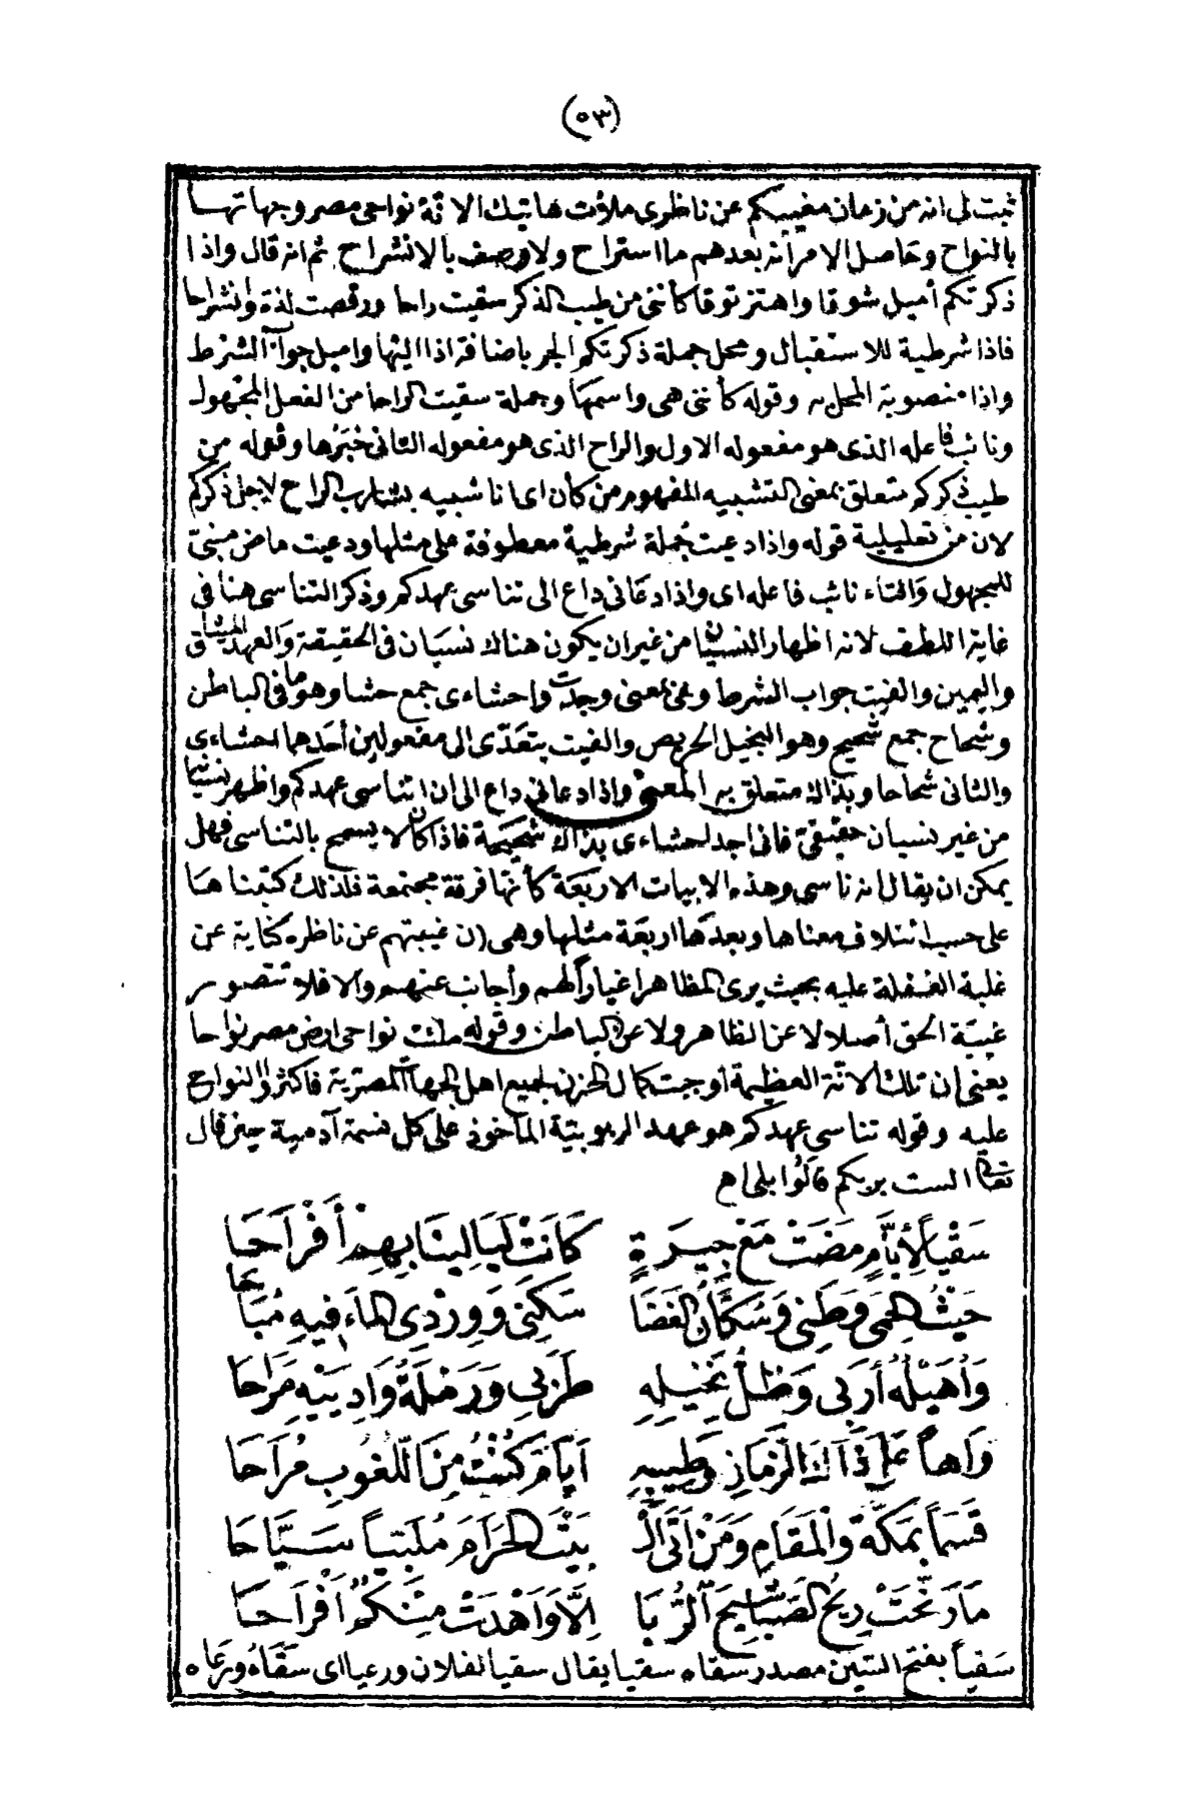 (٥٣)
ثبت لى انه من زمان مغيبكم عن ناظرى ملأت هاتيك الانة نواحى مصر وجهاتها
بالنواح وحاصل الامر انه بعدهم ما استراح ولا وصف بالانشراح ثم انه قال واذا
ذكرتكم أميل شوقا واهتز توقا كأننى من طيب الذكر سقيت راحا ورقصت لذة وانشراحا
فاذا شرطية للاستقبال ومحل جملة ذكرتكم الجر باضافة اذا اليها واميل جواب الشرط
واذا منصوبة المحل به وقوله كأننى هى واسمها وجملة سقيت الراحا من الفعل المجهول
ونائب فاعله الذى هو مفعوله الاول والراح الذى هو مفعوله الثانى خبرها وقوله من
طيب ذكركم متعلق بمعنى التشبيه المفهوم من كأن اى انا شبيه بشارب الراح لاجل ذكركم
لان من تعليلية قوله واذا دعيت جملة شرطية معطوفة على مثلها ودعيت ماض مبنىّ
للمجهول والتاء نائب فاعله اى واذا دعانى داع الى تناسى عهدكم وذكر التناسى هنا فى
غاية اللطف لانه اظهار النسيان من غير ان يكون هناك نسيان فى الحقيقة والعهد الميثاق
واليمين والفيت جواب الشرط وهى بمعنى وجدت واحشاءى جمع حشا وهو ما فى الباطن
وشحاح جمع شحيح وهو البخيل الحريص والفيت يتعدّى الى مفعولين أحدهما احشاءى
والثانى شحاحا وبذاك متعلق به المعنى واذا دعانى داع الى ان اتناسى عهدكم واظهر نسيانا
من غير نسيان حقيقىّ فانى اجد احشاءى بذاك شحيحة فاذا كان لا يسمح بالتناسى فهل
يمكن ان يقال انه ناسى وهذه الابيات الاربعة كأنها فرقة مجتمعة فلذلك كتبناها
على حسب ائتلاف معناها وبعدها اربعة مثلها وهى (ن غيبتهم عن ناظره كناية عن
غلبة الغفلة عليه بحيث يرى المظاهر اغيارا لهم وأجانب عنهم والا فلا تتصور
غيبة الحق أصلا لا عن الظاهر ولا عن الباطن وقوله ملأت نواحى ارض مصر نواحا
يعنى ان تلك الانة العظيمة أوجبت كمال الحزن لجميع اهل الجهات المصرية فاكثروا النواح
عليه وقوله تناسى عهدكم هو عهد الربوبية المأخوذ على كل نسمة آدمية حين قال
تعالى الست بربكم قالوا بلى اه
سَقْيًا لِأَيَّامٍ مَضَتْ مَعْ جِيرَةٍ كَانَتْ لَيَالِينَا بِهِمْ أَفْرَاحَا
حَيْثُ الحِمَى وَطَنِى وَسُكَّانُ الغَضَا سَكَنِى وَوِرْدِى المَاءَ فِيهِ مُبَاحَا
وَأُهَيْلُهُ أَرَبِى وَظِلُّ نَخِيلِهِ طَرَبِى وَرَمْلَةُ وَادِيَيْهِ مَرَاحَا
وَاهًا عَلَى ذَاكَ الزَّمَانِ وَطِيبِهِ أَيَّامَ كُنْتُ مِنَ اللُّغُوبِ مُرَاحَا
قَسَمًا بِمَكَّةَ وَالْمَقَامِ وَمَنْ أَتَى الْ بَيْتَ الحَرَامَ مُلَبِّيًا سَيَّاحَا
مَا رَنَّحَتْ رِيحُ الصَّبَا شِيحَ الرُّبَا إِلَّا وَأَهْدَتْ مِنْكُمُ أَفْرَاحَا
سَقْيًا بفتح السين مصدر سقاه سقيا يقال سقيا لفلان ورعيا اى سَقَاهُ ورَعَاه